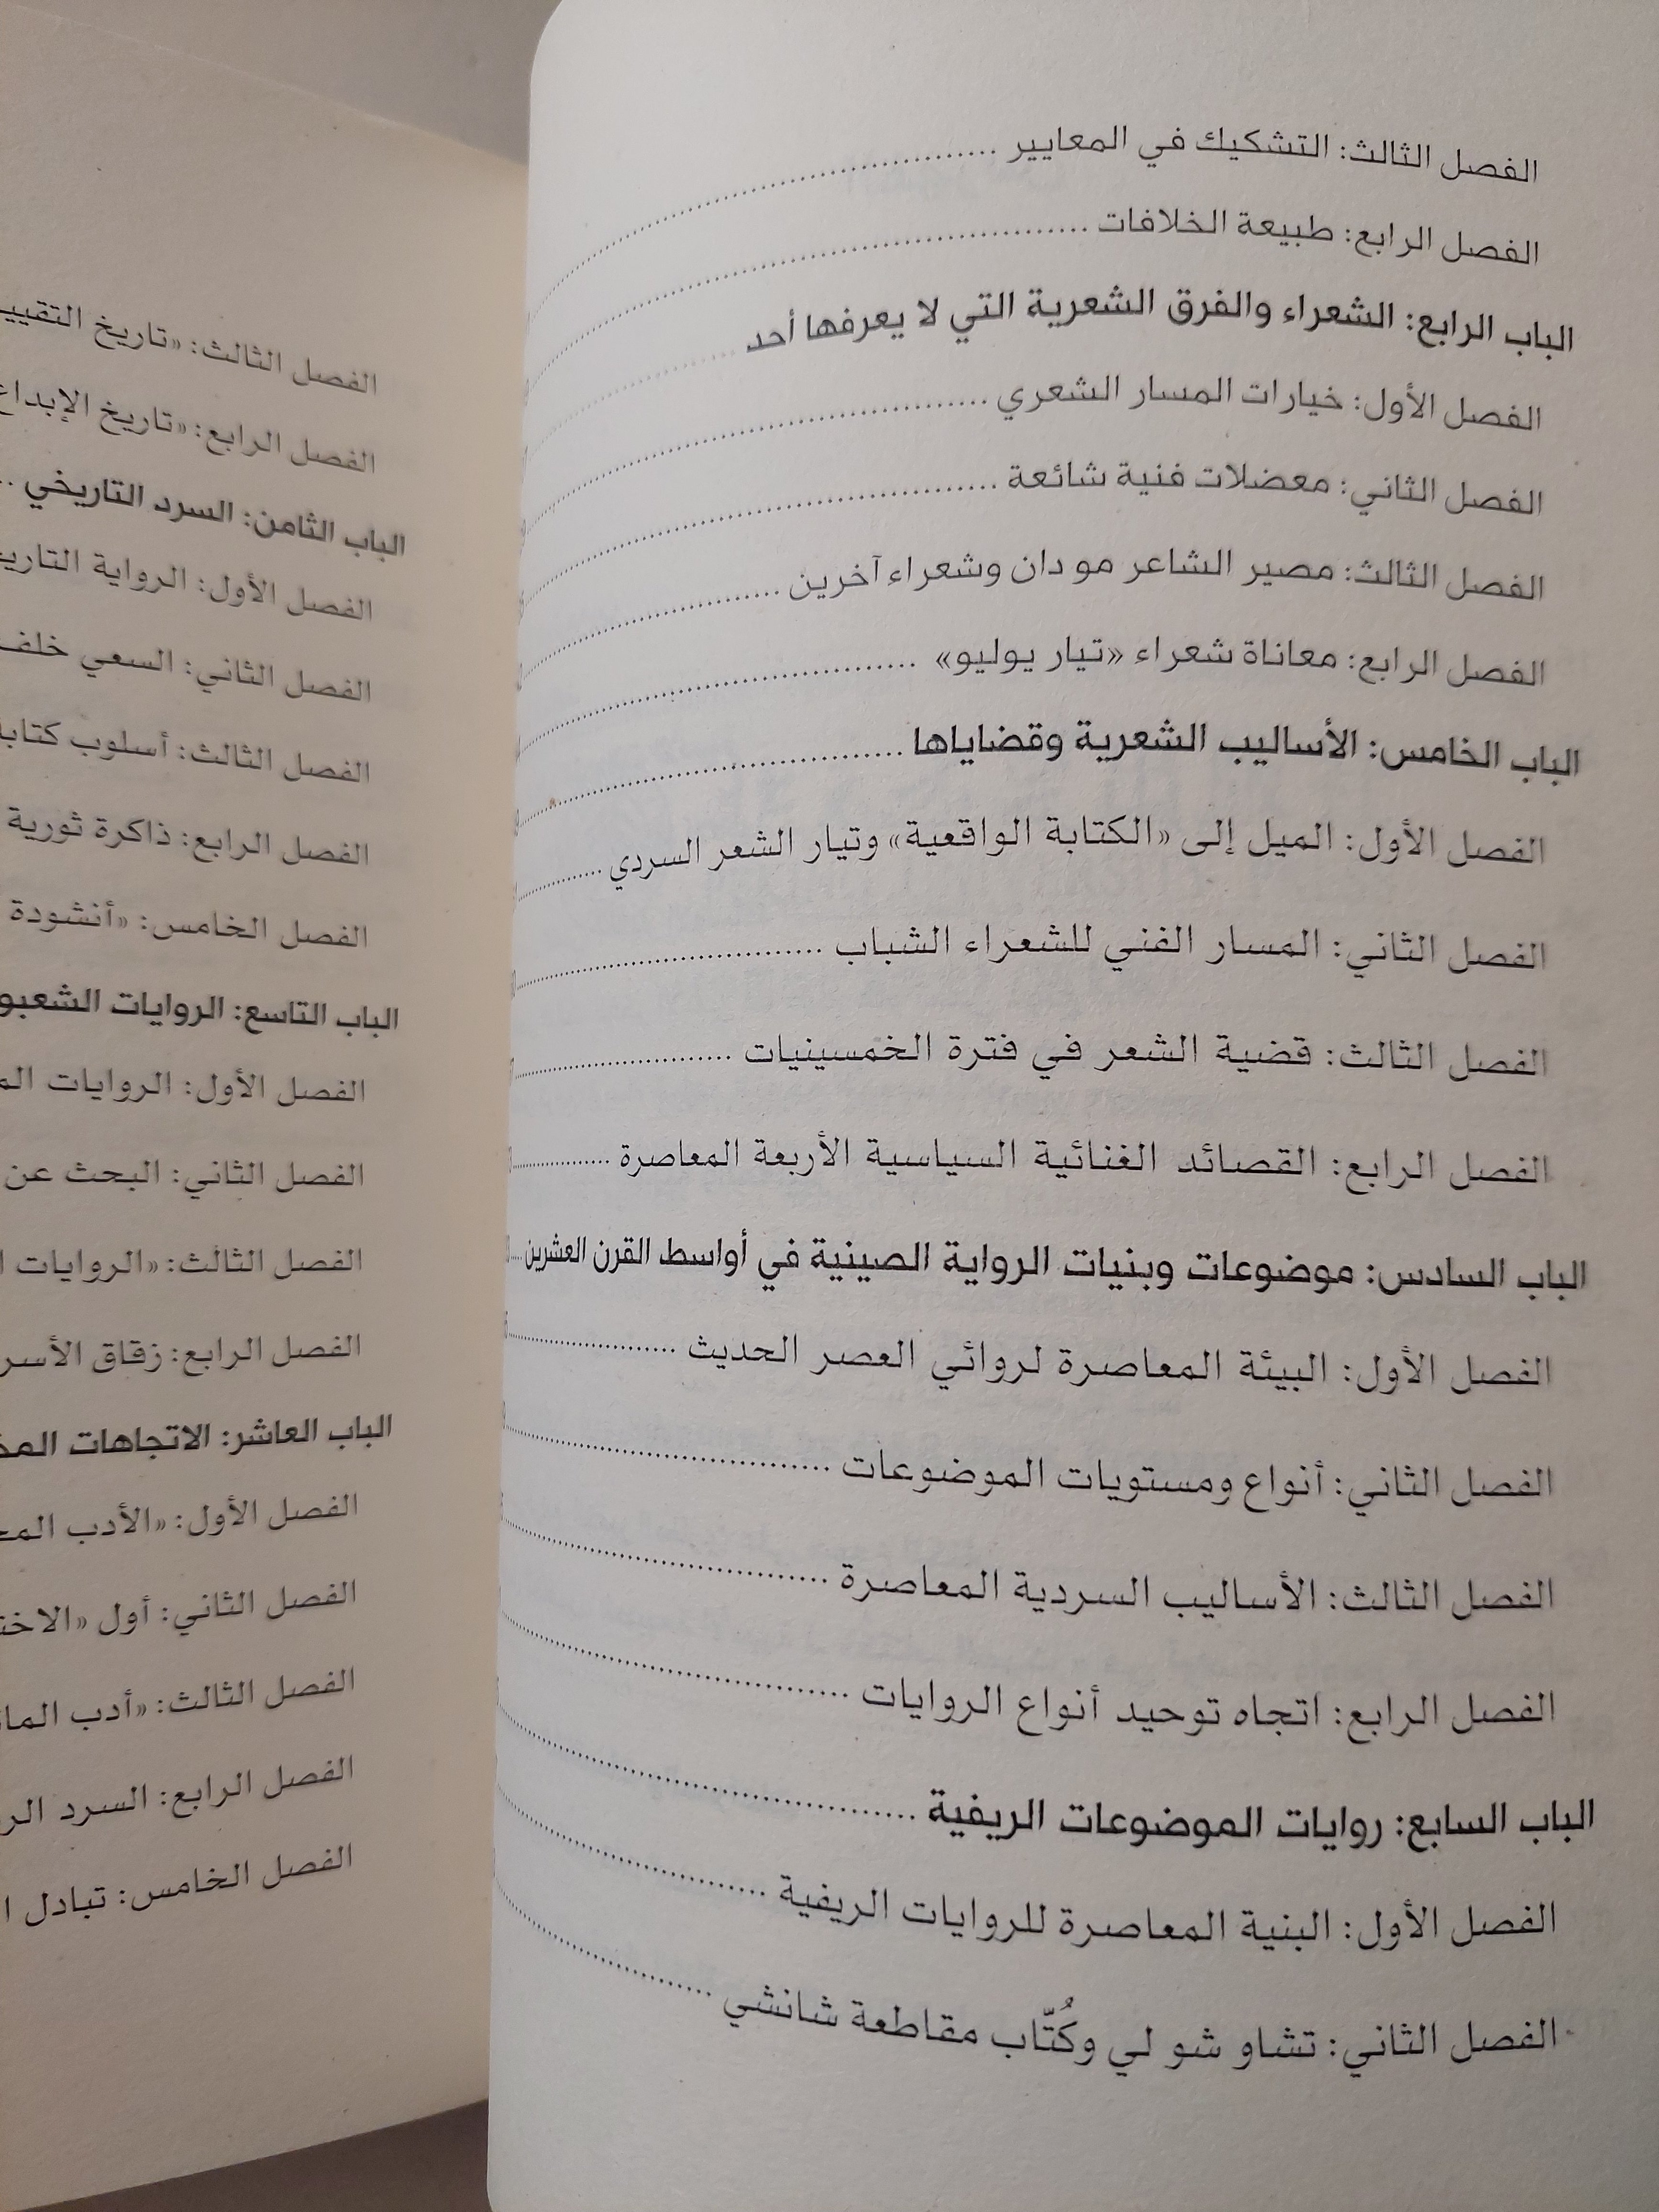 الفصل الثالث: التشكيك في المعايير
الفصل الرابع: طبيعة الخلافات
الباب الرابع: الشعراء والفرق الشعرية التي لا يعرفها أحد
الفصل الأول: خيارات المسار الشعري
الفصل الثاني: معضلات فنية شائعة
الفصل الثالث: مصير الشاعر مو دان وشعراء آخرين
الفصل الرابع: معاناة شعراء «تيار يوليو»
الباب الخامس: الأساليب الشعرية وقضاياها
الفصل الأول: الميل إلى «الكتابة الواقعية» وتيار الشعر السردي
الفصل الثاني: المسار الفني للشعراء الشباب
الفصل الثالث: قضية الشعر في فترة الخمسينيات
الفصل الرابع: القصائد الغنائية السياسية الأربعة المعاصرة
الباب السادس: موضوعات وبنيات الرواية الصينية في أواسط القرن العشرين
الفصل الأول: البيئة المعاصرة لروائي العصر الحديث
الفصل الثاني: أنواع ومستويات الموضوعات
الفصل الثالث: الأساليب السردية المعاصرة
الفصل الرابع: اتجاه توحيد أنواع الروايات
الباب السابع: روايات الموضوعات الريفية
الفصل الأول: البنية المعاصرة للروايات الريفية
الفصل الثاني: تشاو شو لي وكُتّاب مقاطعة شانشي
الفصل الثالث: «تاريخ
الفصل الرابع: «تاريخ
الباب الثامن: السرد التاريخي
الفصل الأول: الرواية
الفصل الثاني: السعي خلف
الفصل الثالث: أسلوب
الفصل الرابع: ذاكرة ثورية
الفصل الخامس: «أنشودة
الباب التاسع: الروايات
الفصل الأول: الروايات
الفصل الثاني: البحث عن
الفصل الثالث: «الروايات
الفصل الرابع: زقاق
الباب العاشر: الاتجاهات
الفصل الأول: «الأدب
الفصل الثاني: أول
الفصل الثالث: «أدب
الفصل الرابع: السرد
الفصل الخامس: تبادل